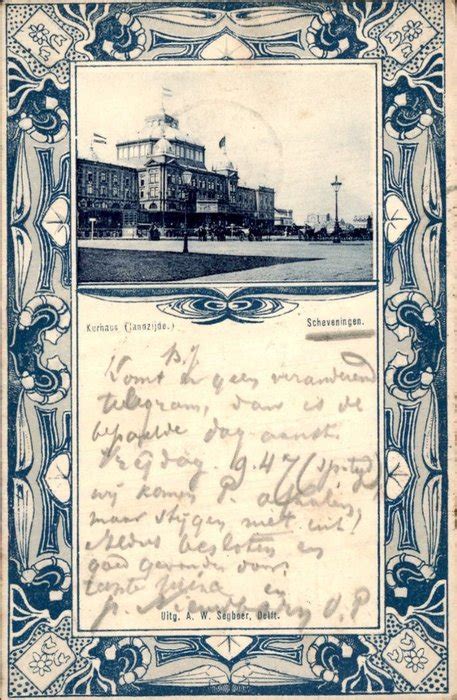 Kurhaus (Landzijde.)
Scheveningen.
Komt er geen veranderend
telegram, dan is de
bepaalde dag aanst.
Vrijdag. 9.47 (sp.tyd)
wij komen P. afhalen,
maar stijgen niet uit!
Aldus besloten en
goed gevonden door
en
Uitg. A. W. Segboer, Delft.